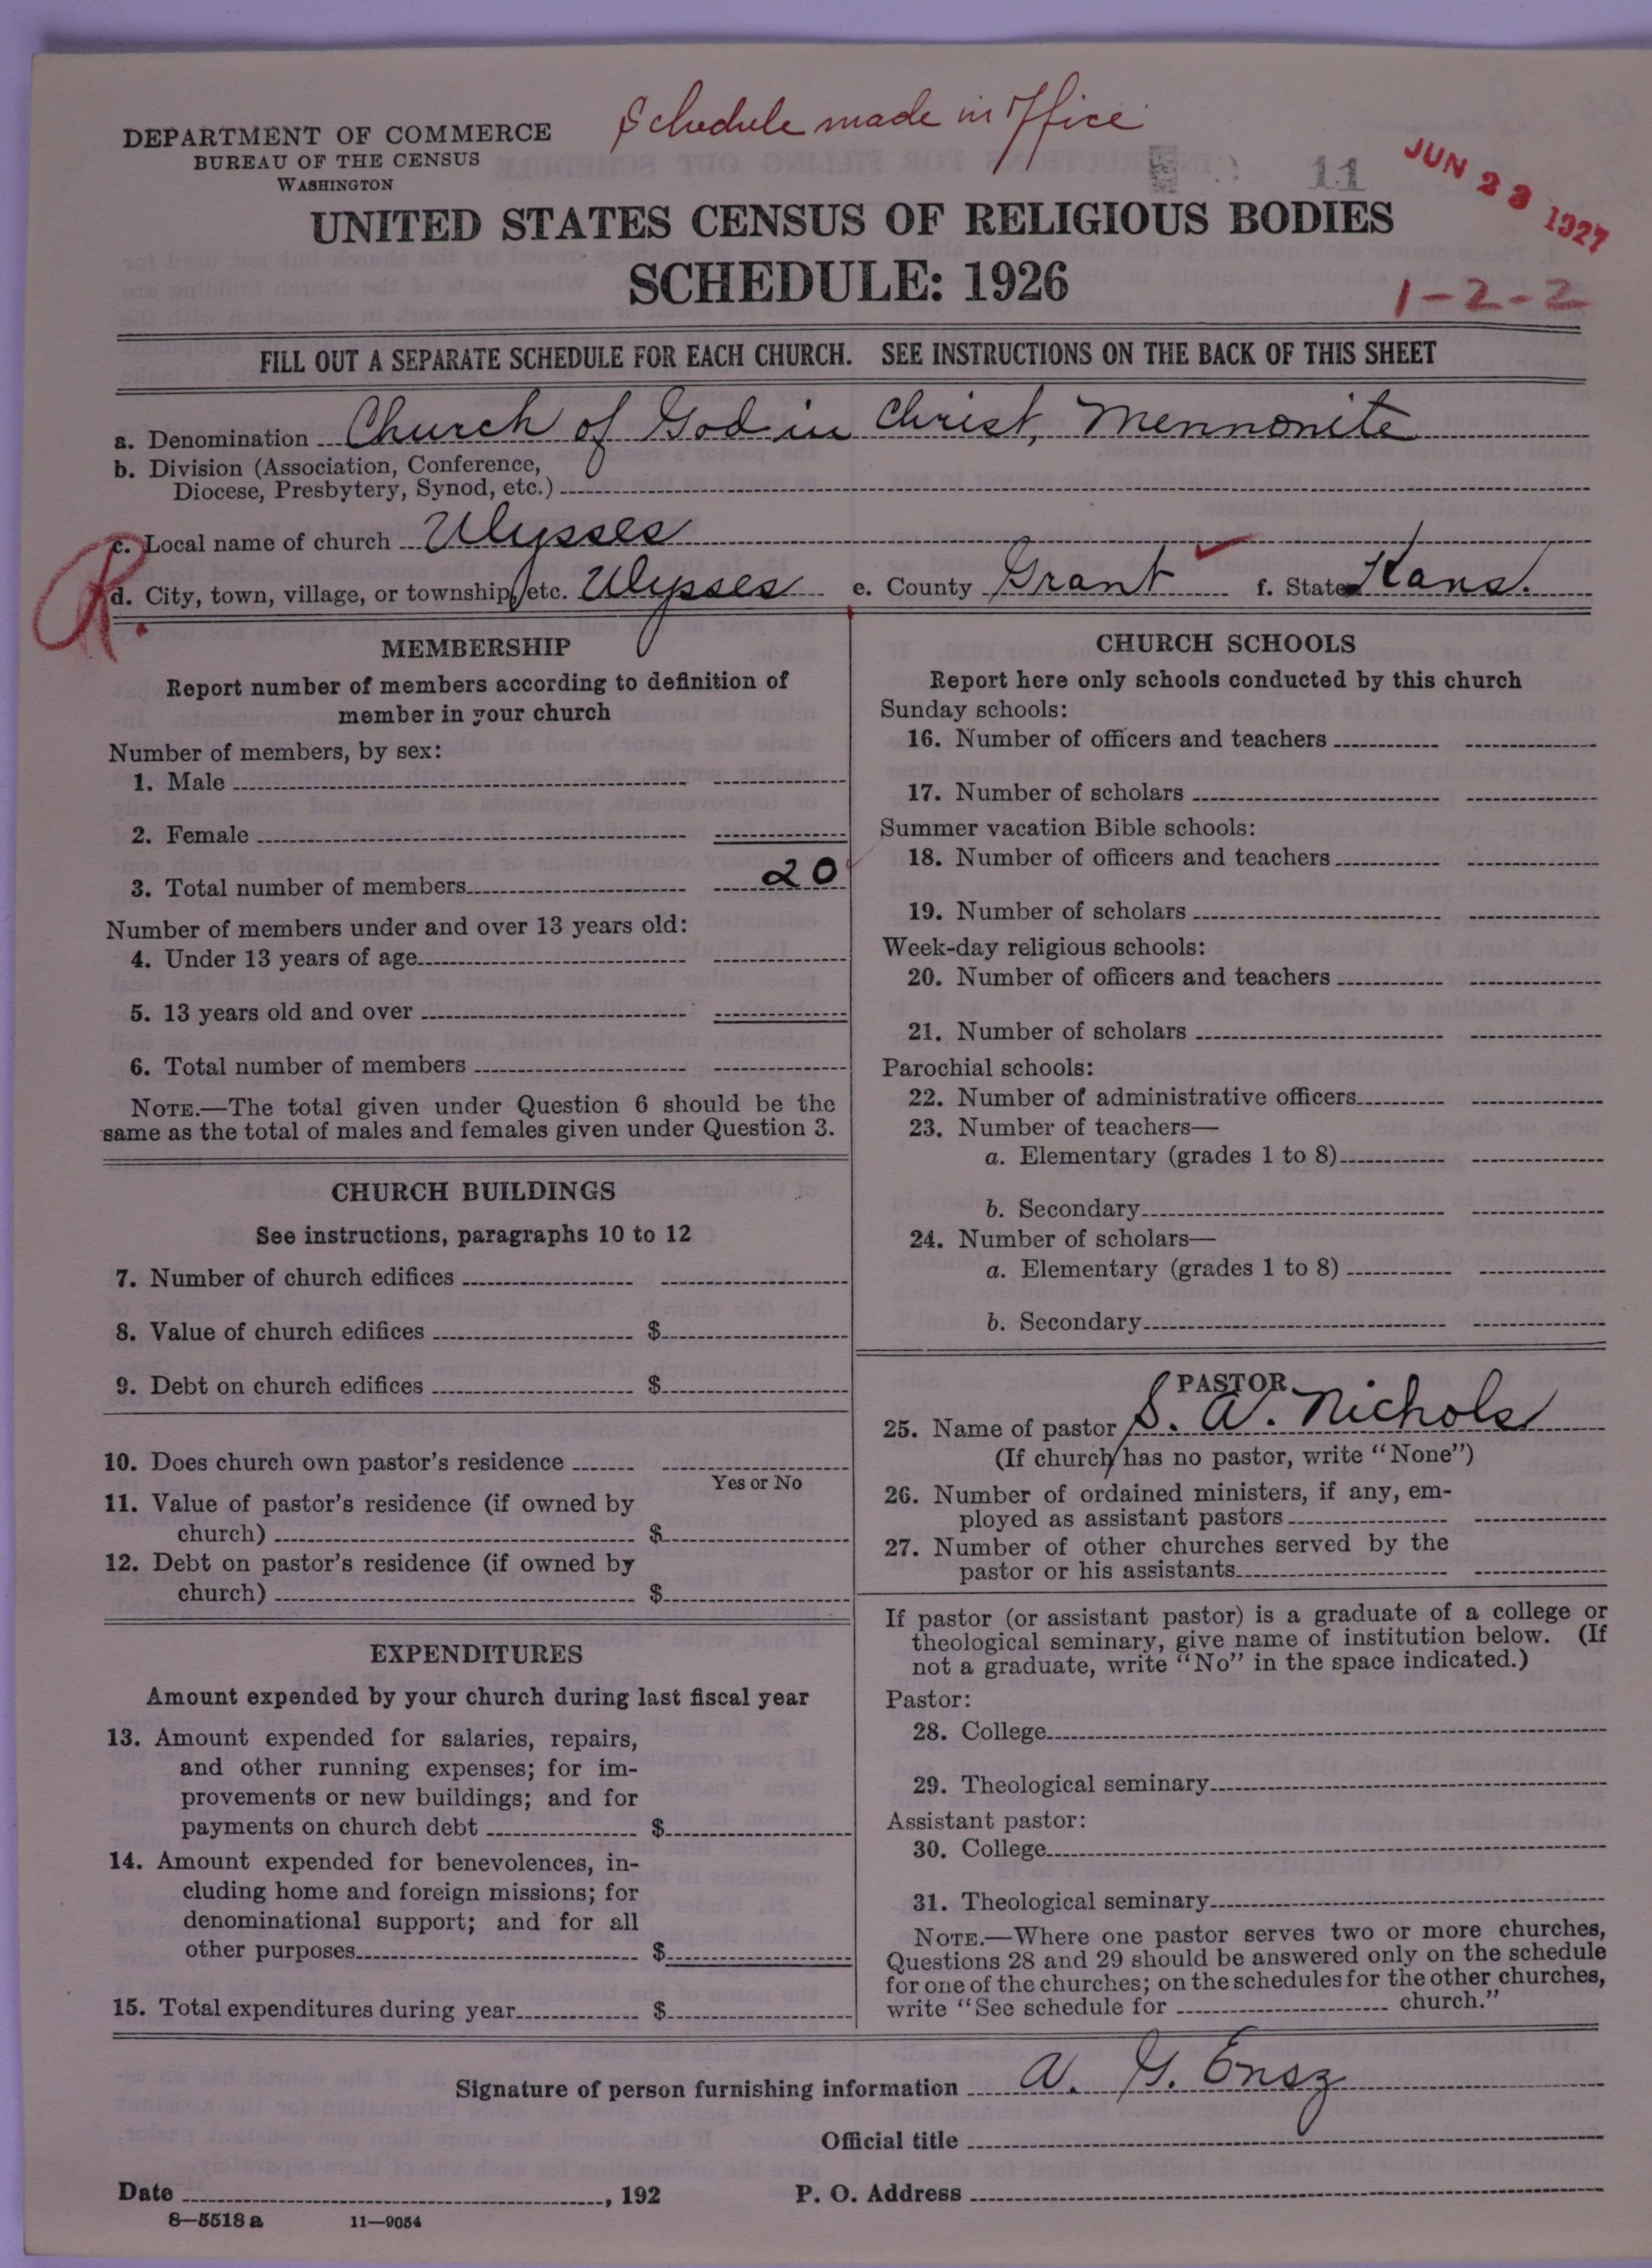 Schedule made in office
DEPARTMENT OF COMMERCE
BUREAU OF THE CENSUS
WASHINGTON
11
JUN 23 1927
UNITED STATES CENSUS OF RELIGIOUS BODIES
SCHEDULE: 1926
1-2-2
FILL OUT A SEPARATE SCHEDULE FOR EACH CHURCH. SEE INSTRUCTIONS ON THE BACK OF THIS SHEET
a. Denomination Church of God in Christ, Mennonite
b. Division (Association, Conference,
Diocese, Presbytery, Synod, etc.)
c. Local name of church Ulysses
R
d. City, town, village, or township, etc. Ulysses e. County Grant f. State Kans.
MEMBERSHIP
Report number of members according to definition of
member in your church
Number of members, by sex:
1. Male
2. Female
3. Total number of members 20
Number of members under and over 13 years old:
4. Under 13 years of age
5. 13 years old and over
6. Total number of members
NOTE.—The total given under Question 6 should be the
same as the total of males and females given under Question 3.
CHURCH BUILDINGS
See instructions, paragraphs 10 to 12
7. Number of church edifices
8. Value of church edifices $
9. Debt on church edifices $
10. Does church own pastor's residence
Yes or No
11. Value of pastor's residence (if owned by
church) $
12. Debt on pastor's residence (if owned by
church) $
EXPENDITURES
Amount expended by your church during last fiscal year
13. Amount expended for salaries, repairs,
and other running expenses; for im-
provements or new buildings; and for
payments on church debt $
14. Amount expended for benevolences, in-
cluding home and foreign missions; for
denominational support; and for all
other purposes $
15. Total expenditures during year $
CHURCH SCHOOLS
Report here only schools conducted by this church
Sunday schools:
16. Number of officers and teachers
17. Number of scholars
Summer vacation Bible schools:
18. Number of officers and teachers
19. Number of scholars
Week-day religious schools:
20. Number of officers and teachers
21. Number of scholars
Parochial schools:
22. Number of administrative officers
23. Number of teachers—
a. Elementary (grades 1 to 8)
b. Secondary
24. Number of scholars—
a. Elementary (grades 1 to 8)
b. Secondary
PASTOR
25. Name of pastor S. A. Nichols
(If church has no pastor, write "None")
26. Number of ordained ministers, if any, em-
ployed as assistant pastors
27. Number of other churches served by the
pastor or his assistants
If pastor (or assistant pastor) is a graduate of a college or
theological seminary, give name of institution below. (If
not a graduate, write "No" in the space indicated.)
Pastor:
28. College
29. Theological seminary
Assistant pastor:
30. College
31. Theological seminary
NOTE.—Where one pastor serves two or more churches,
Questions 28 and 29 should be answered only on the schedule
for one of the churches; on the schedules for the other churches,
write "See schedule for church."
Signature of person furnishing information A. G. Ensz
Official title
Date , 192 P. O. Address
8—5518 a 11—9054